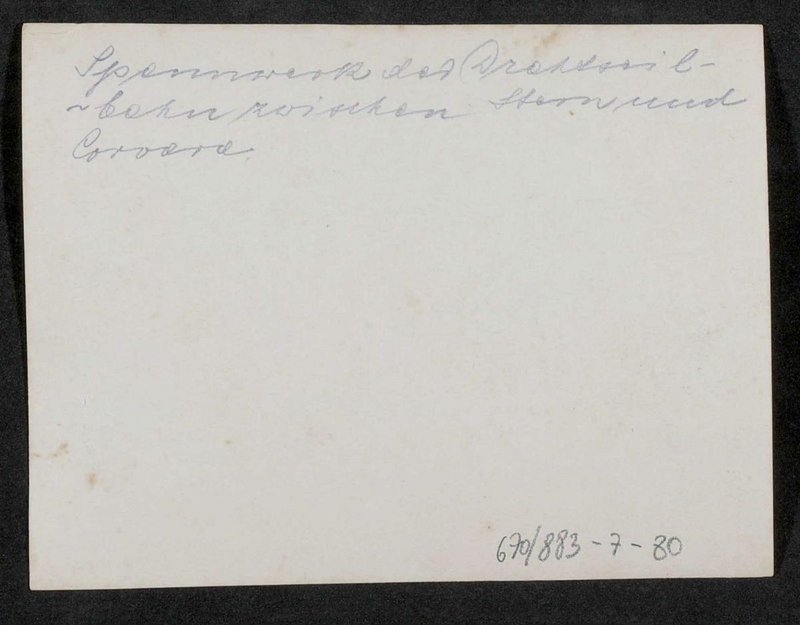 Spannwerk der Drahtseil-
-bahn zwischen Stern und
Corvara.
670/883-7-80